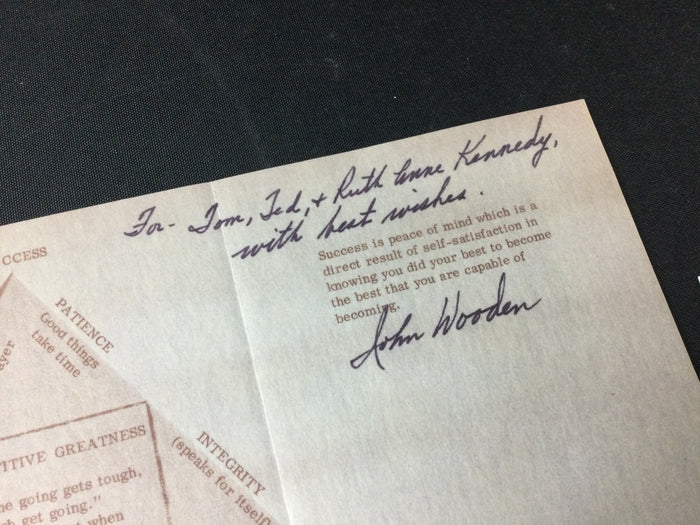 For- Tom, Ted, & Ruth Anne Kennedy,
with best wishes.
Success is peace of mind which is a
direct result of self-satisfaction in
knowing you did your best to become
the best that you are capable of
becoming.
John Wooden
CCESS
PATIENCE
Good things
take time
ayer
INTEGRITY
(speaks for itself
ITIVE GREATNESS
he going gets tough,
h get going."
when